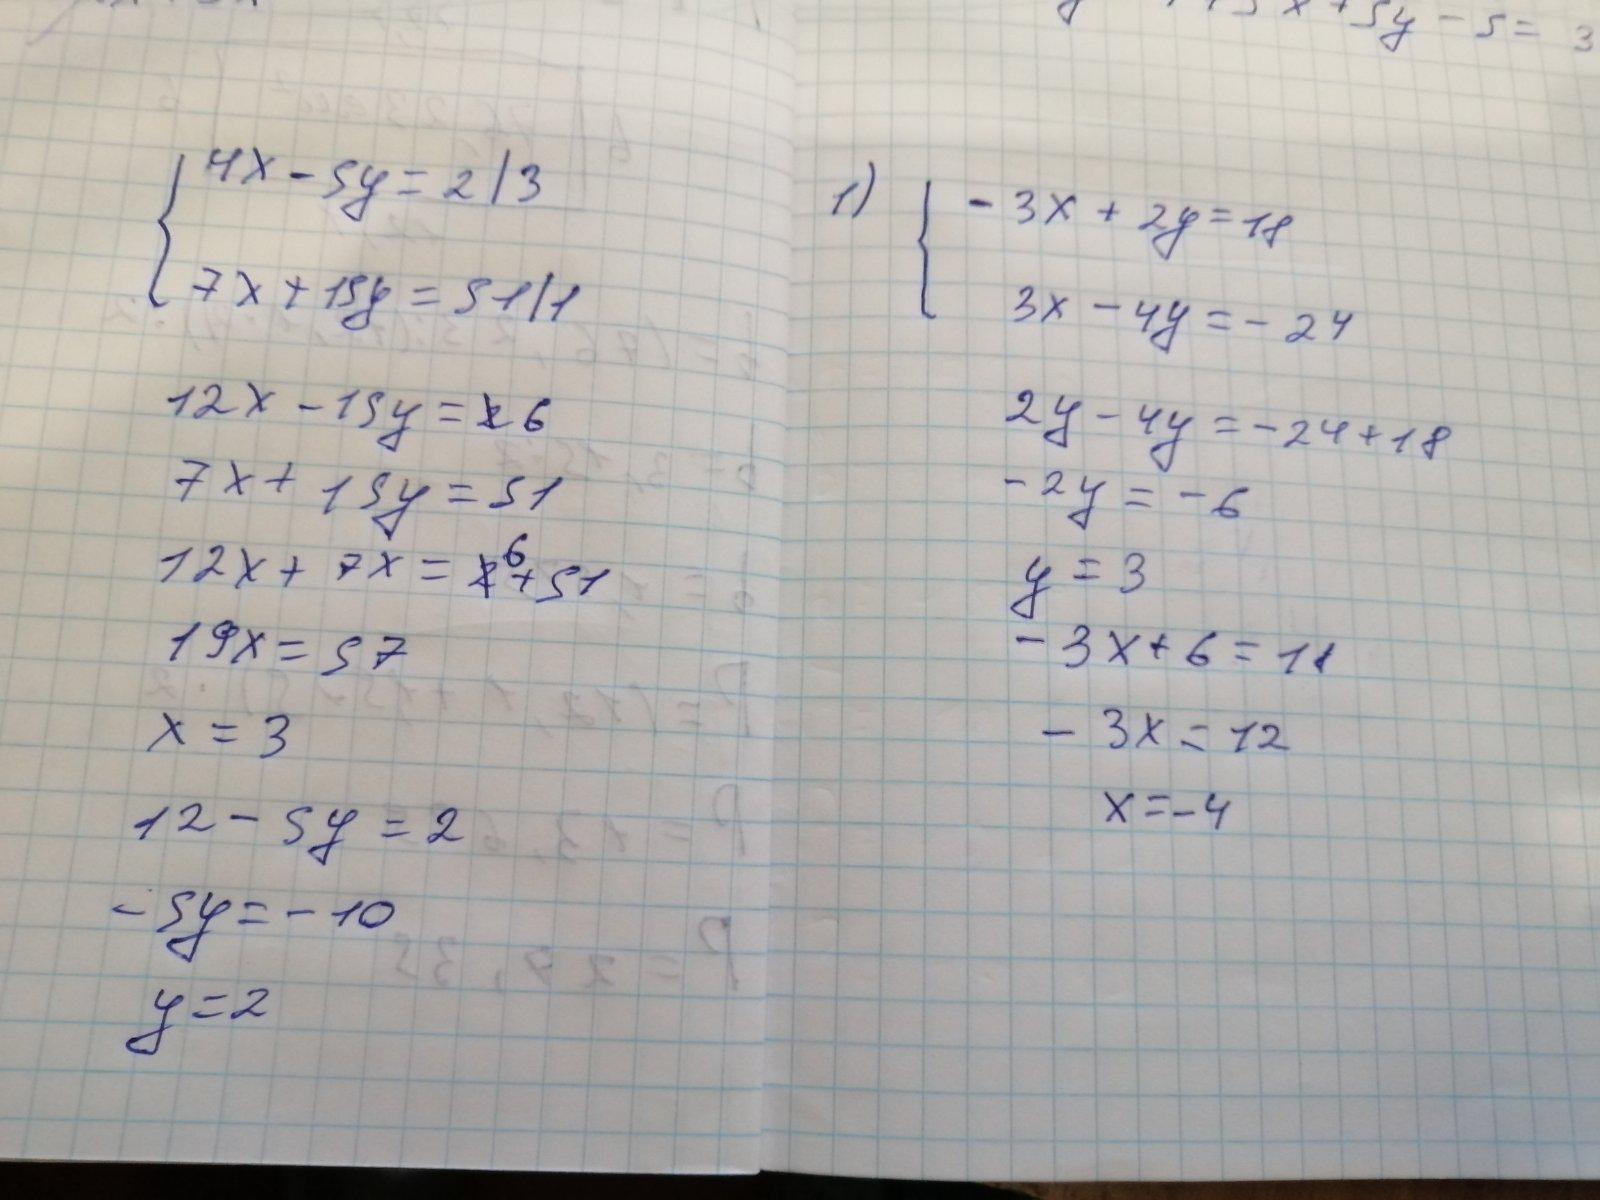 4x - 5y = 2 | 3
7x + 15y = 51 | 1
12x - 15y = 6
7x + 15y = 51
12x + 7x = 6 + 51
19x = 57
x = 3
12 - 5y = 2
- 5y = - 10
y = 2
x + 5y - 5 = 3
1)
- 3x + 2y = 18
3x - 4y = - 24
2y - 4y = - 24 + 18
- 2y = - 6
y = 3
- 3x + 6 = 18
- 3x = 12
x = - 4